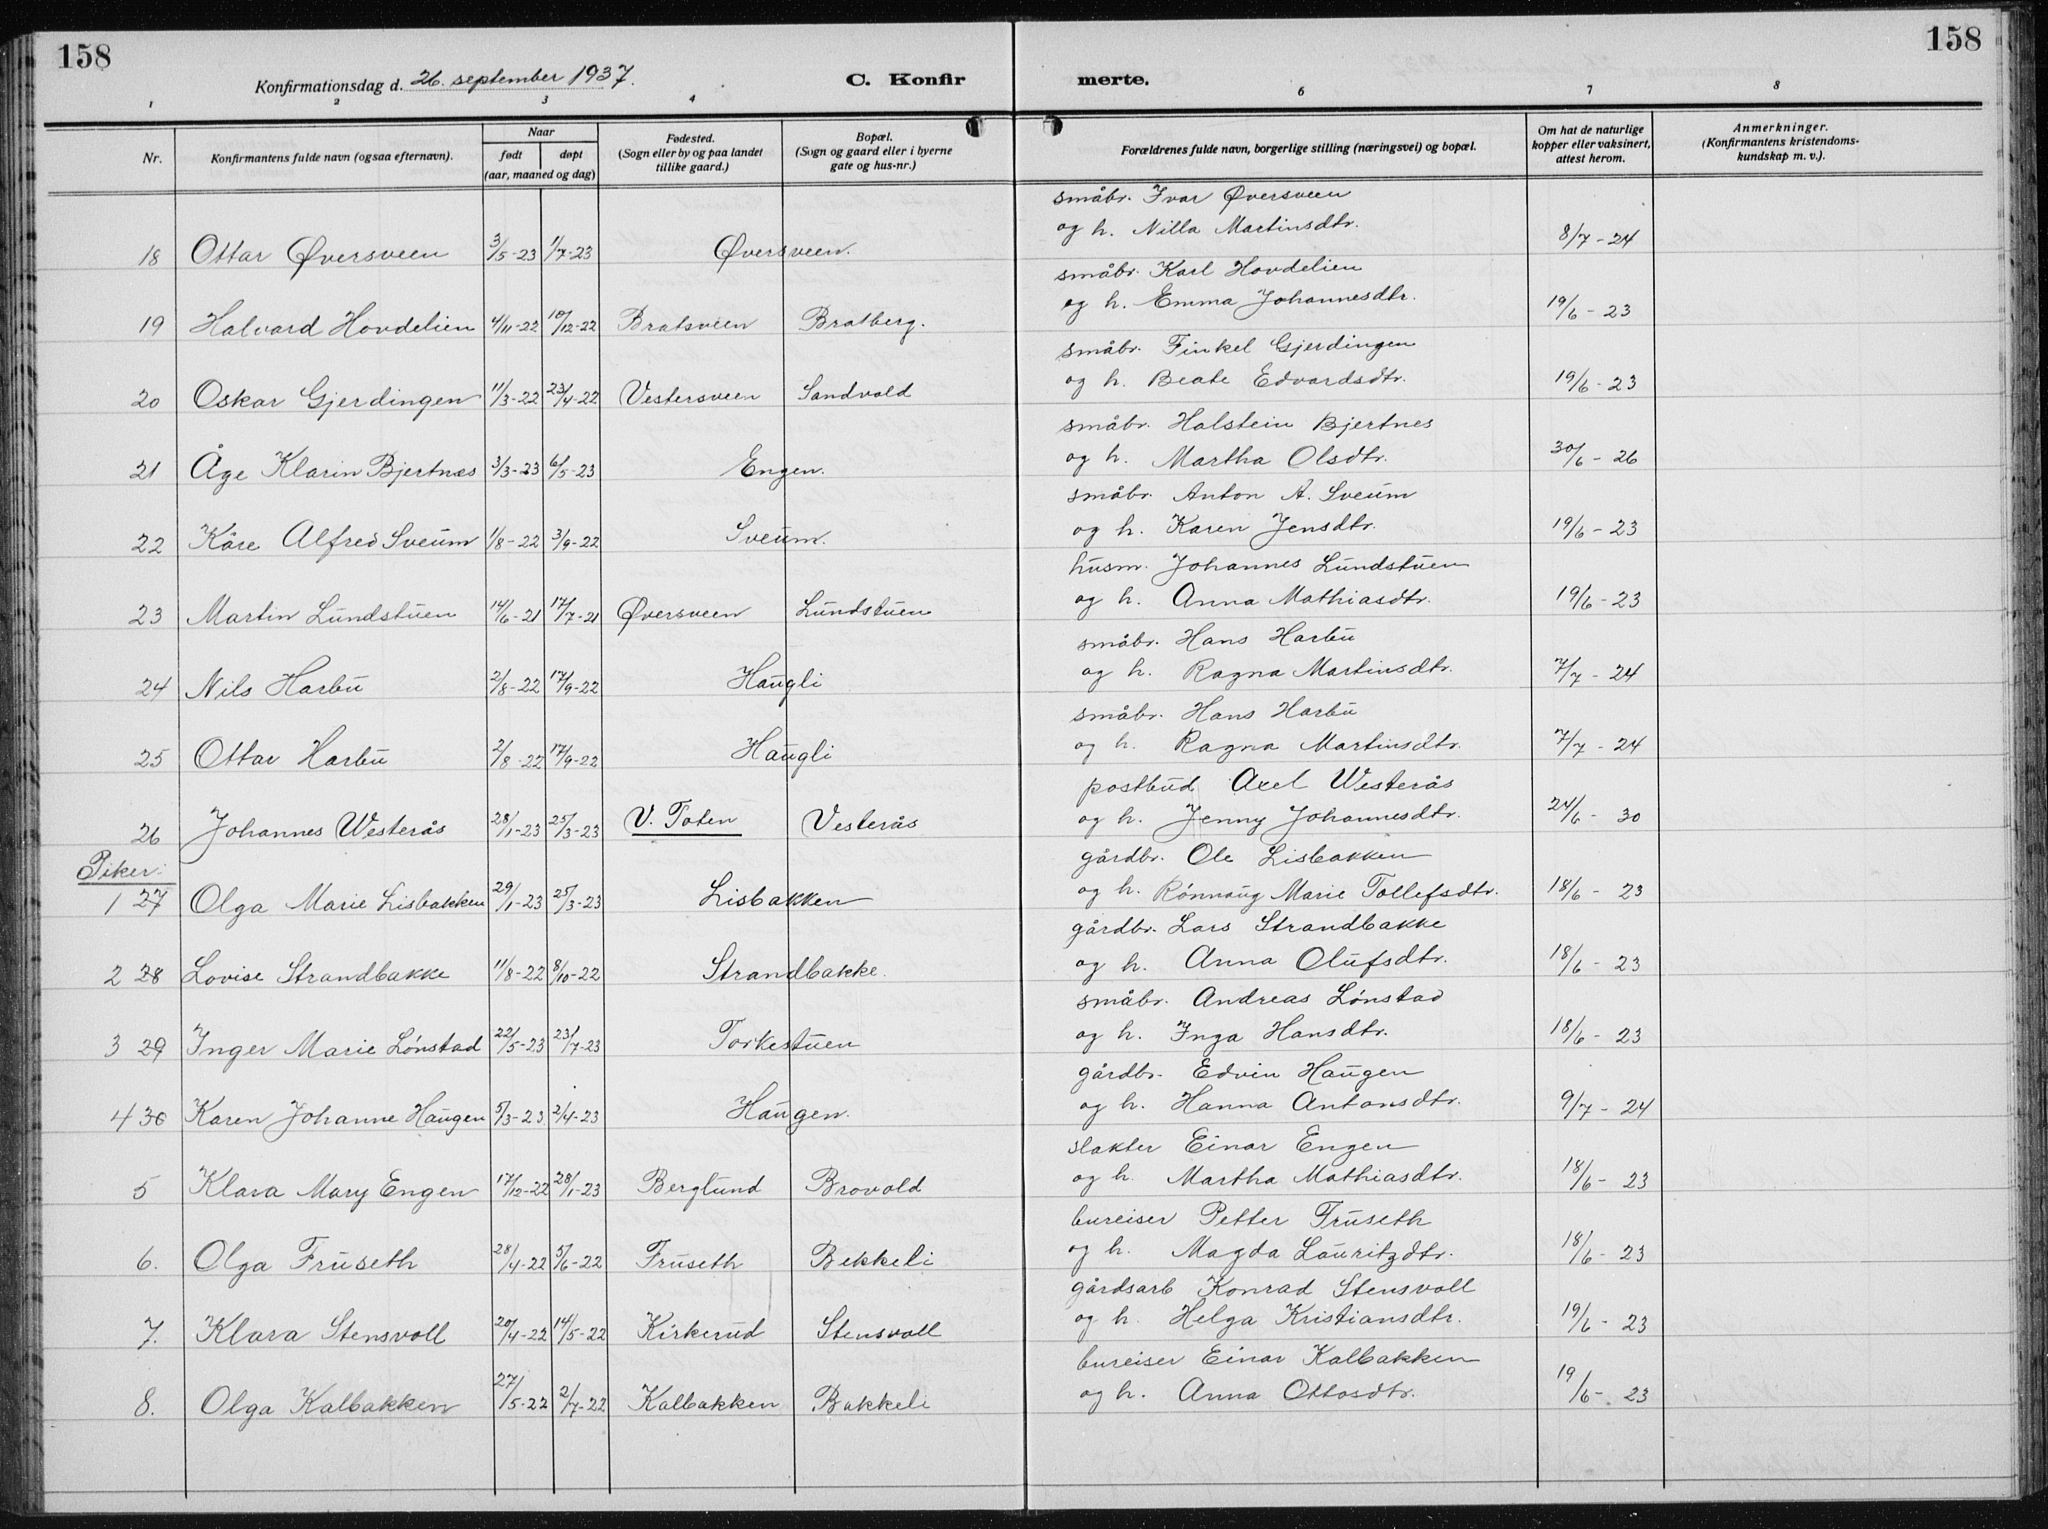 158
158
Konfirmationsdag d. 26. september 1937.
C. Konfir
merte.
1 2 3 4 6 7 8
Nr.
Konfirmantens fulde navn (ogsaa efternavn).
Naar
født
døpt
(aar, maaned og dag)
Fødested.
(Sogn eller by og paa landet
tillike gaard.)
Bopæl.
(Sogn og gaard eller i byerne
gate og hus-nr.)
Forældrenes fulde navn, borgerlige stilling (næringsvei) og bopæl.
Om hat de naturlige
kopper eller vaksinert,
attest herom.
Anmerkninger.
(Konfirmantens kristendoms-
kundskap m. v.).
småbr. Ivar Øversveen
18 Ottar Øversveen 3/5-23 1/7-23 Øversveen. og h. Nilla Martinsdtr. 8/7-24
småbr. Karl Hovdelien
19 Halvard Hovdelien 4/11-22 10/12-22 Bratsveen Bratberg. og h. Emma Johannesdtr. 19/6-23
småbr. Finkel Gjerdingen
20 Oskar Gjerdingen 11/3-22 23/4-22 Vestersveen Sandvold og h. Beate Edvardsdtr. 19/6-23
småbr. Halstein Bjertnes
21 Åge Klarin Bjertnæs 3/3-23 6/5-23 Engen. og h. Martha Olsdtr. 30/6-26
småbr. Anton A. Sveum
22 Kåre Alfred Sveum 1/8-22 3/9-22 Sveum. og h. Karen Jensdtr. 19/6-23
husm. Johannes Lundstuen
23 Martin Lundstuen 14/6-21 17/7-21 Øversveen Lundstuen og h. Anna Mathiasdtr. 19/6-23
småbr. Hans Harbu
24 Nils Harbu 2/8-22 17/9-22 Haugli og h. Ragna Martinsdtr. 7/7-24
småbr. Hans Harbu
25 Ottar Harbu 2/8-22 17/9-22 Haugli og h. Ragna Martinsdtr. 7/7-24
postbud Axel Westerås
26 Johannes Westerås 28/1-23 25/3-23 V. Toten Vesterås og h. Jenny Johannesdtr. 24/6-30
Piker:
gårdbr. Ole Lisbakken
1 27 Olga Marie Lisbakken 29/1-23 25/3-23 Lisbakken og h. Rønnaug Marie Tollefsdtr. 18/6-23
gårdbr. Lars Strandbakke
2 28 Lovise Strandbakke 11/8-22 8/10-22 Strandbakke. og h. Anna Olufsdtr. 18/6-23
småbr. Andreas Lønstad
3 29 Inger Marie Lønstad 22/5-23 23/7-23 Torkestuen og h. Inga Hansdtr. 18/6-23
gårdbr. Edvin Haugen
4 30 Karen Johanne Haugen 5/3-23 2/4-23 Haugen. og h. Hanna Antonsdtr. 9/7-24
slakter Einar Engen
5 Klara Mary Engen 17/12-22 28/1-23 Berglund Brovold og h. Martha Mathiasdtr. 18/6-23
bureiser Petter Fruseth
6. Olga Fruseth 28/4-22 5/6-22 Fruseth Bekkeli og h. Magda Lauritzdtr. 18/6-23
gårdsarb Konrad Stensvoll
7. Klara Stensvoll 20/4-22 14/5-22 Kirkerud Stensvoll og h. Helga Kristiansdtr. 19/6-23
bureiser Einar Kalbakken
8. Olga Kalbakken 27/5-22 2/7-22 Kalbakken Bakkeli og h. Anna Ottosdtr. 19/6-23